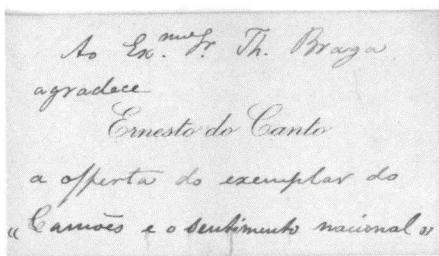 Ao Ex.mo Sr. Th. Braga
agradece
Ernesto do Canto
a offerta do exemplar do
«Camões e o sentimento nacional»